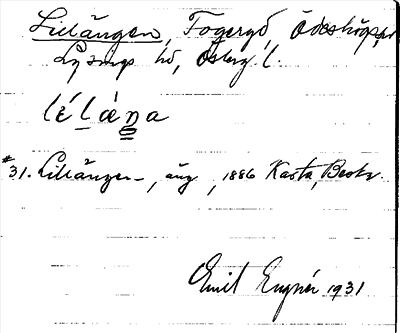 Lillängen, Fogergö, Ödeshögs sn
Lysings hd, Österg. l.
lélàṉa
*31. Lillängen —, äng, 1886 Karta, Beskr.
Emil Engnér 1931